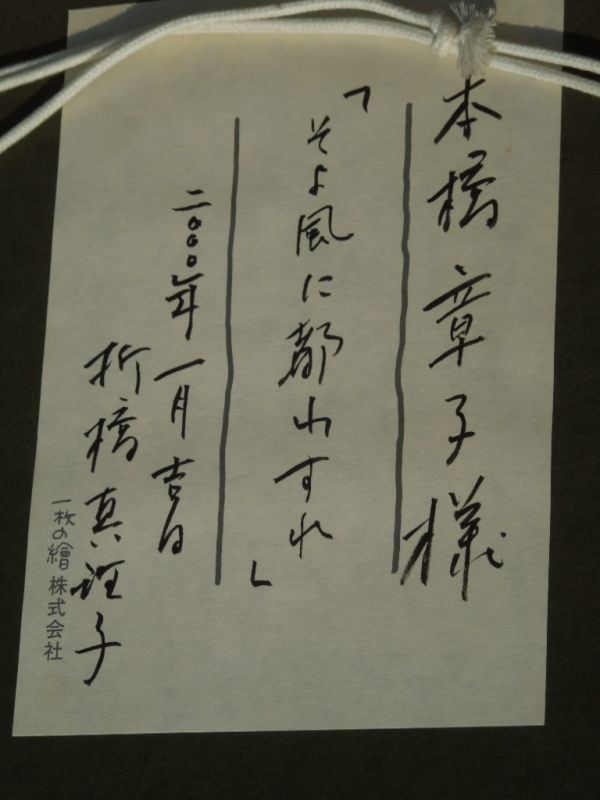 本橋章子様
「そよ風に都わすれ」
二〇〇〇年一月吉日
折橋真理子
一枚の繪株式会社